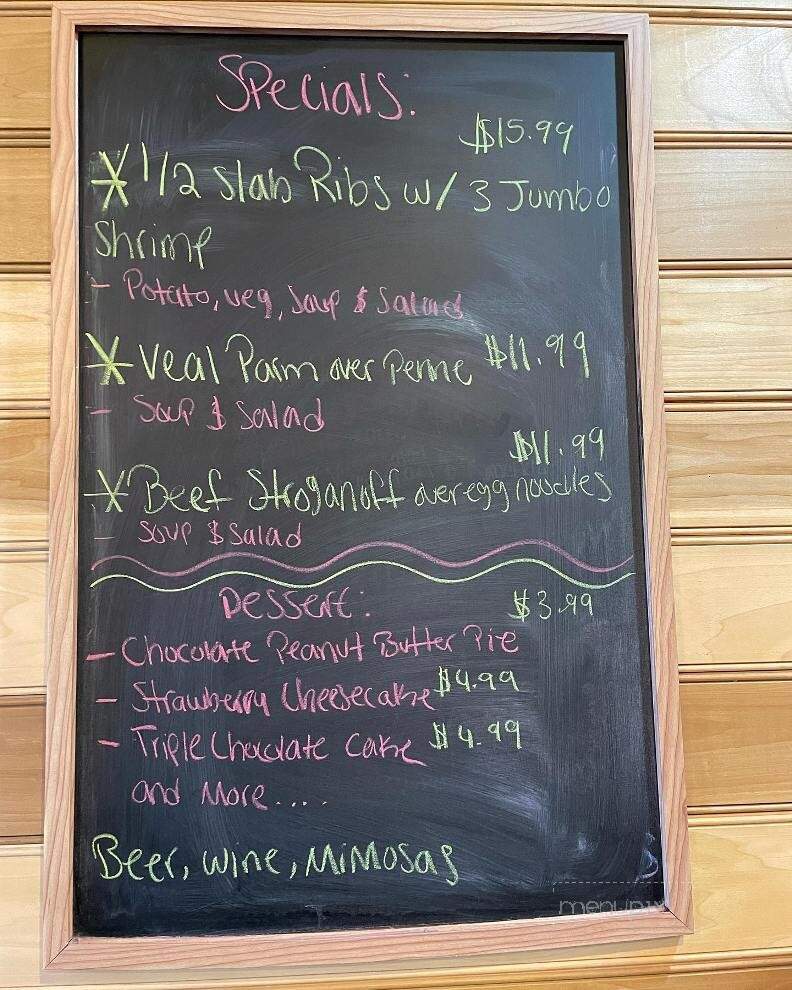 Specials:
$15.99
* 1/2 Slab Ribs w/ 3 Jumbo
Shrimp
- Potato, veg, Soup & Salad
* Veal Parm over Penne $11.99
- Soup & Salad
$11.99
* Beef Stroganoff over egg noodles
- Soup & Salad
Dessert: $3.99
- Chocolate Peanut Butter Pie
- Strawberry Cheesecake $4.99
- Triple Chocolate Cake $4.99
and More....
Beer, wine, Mimosas
menupix